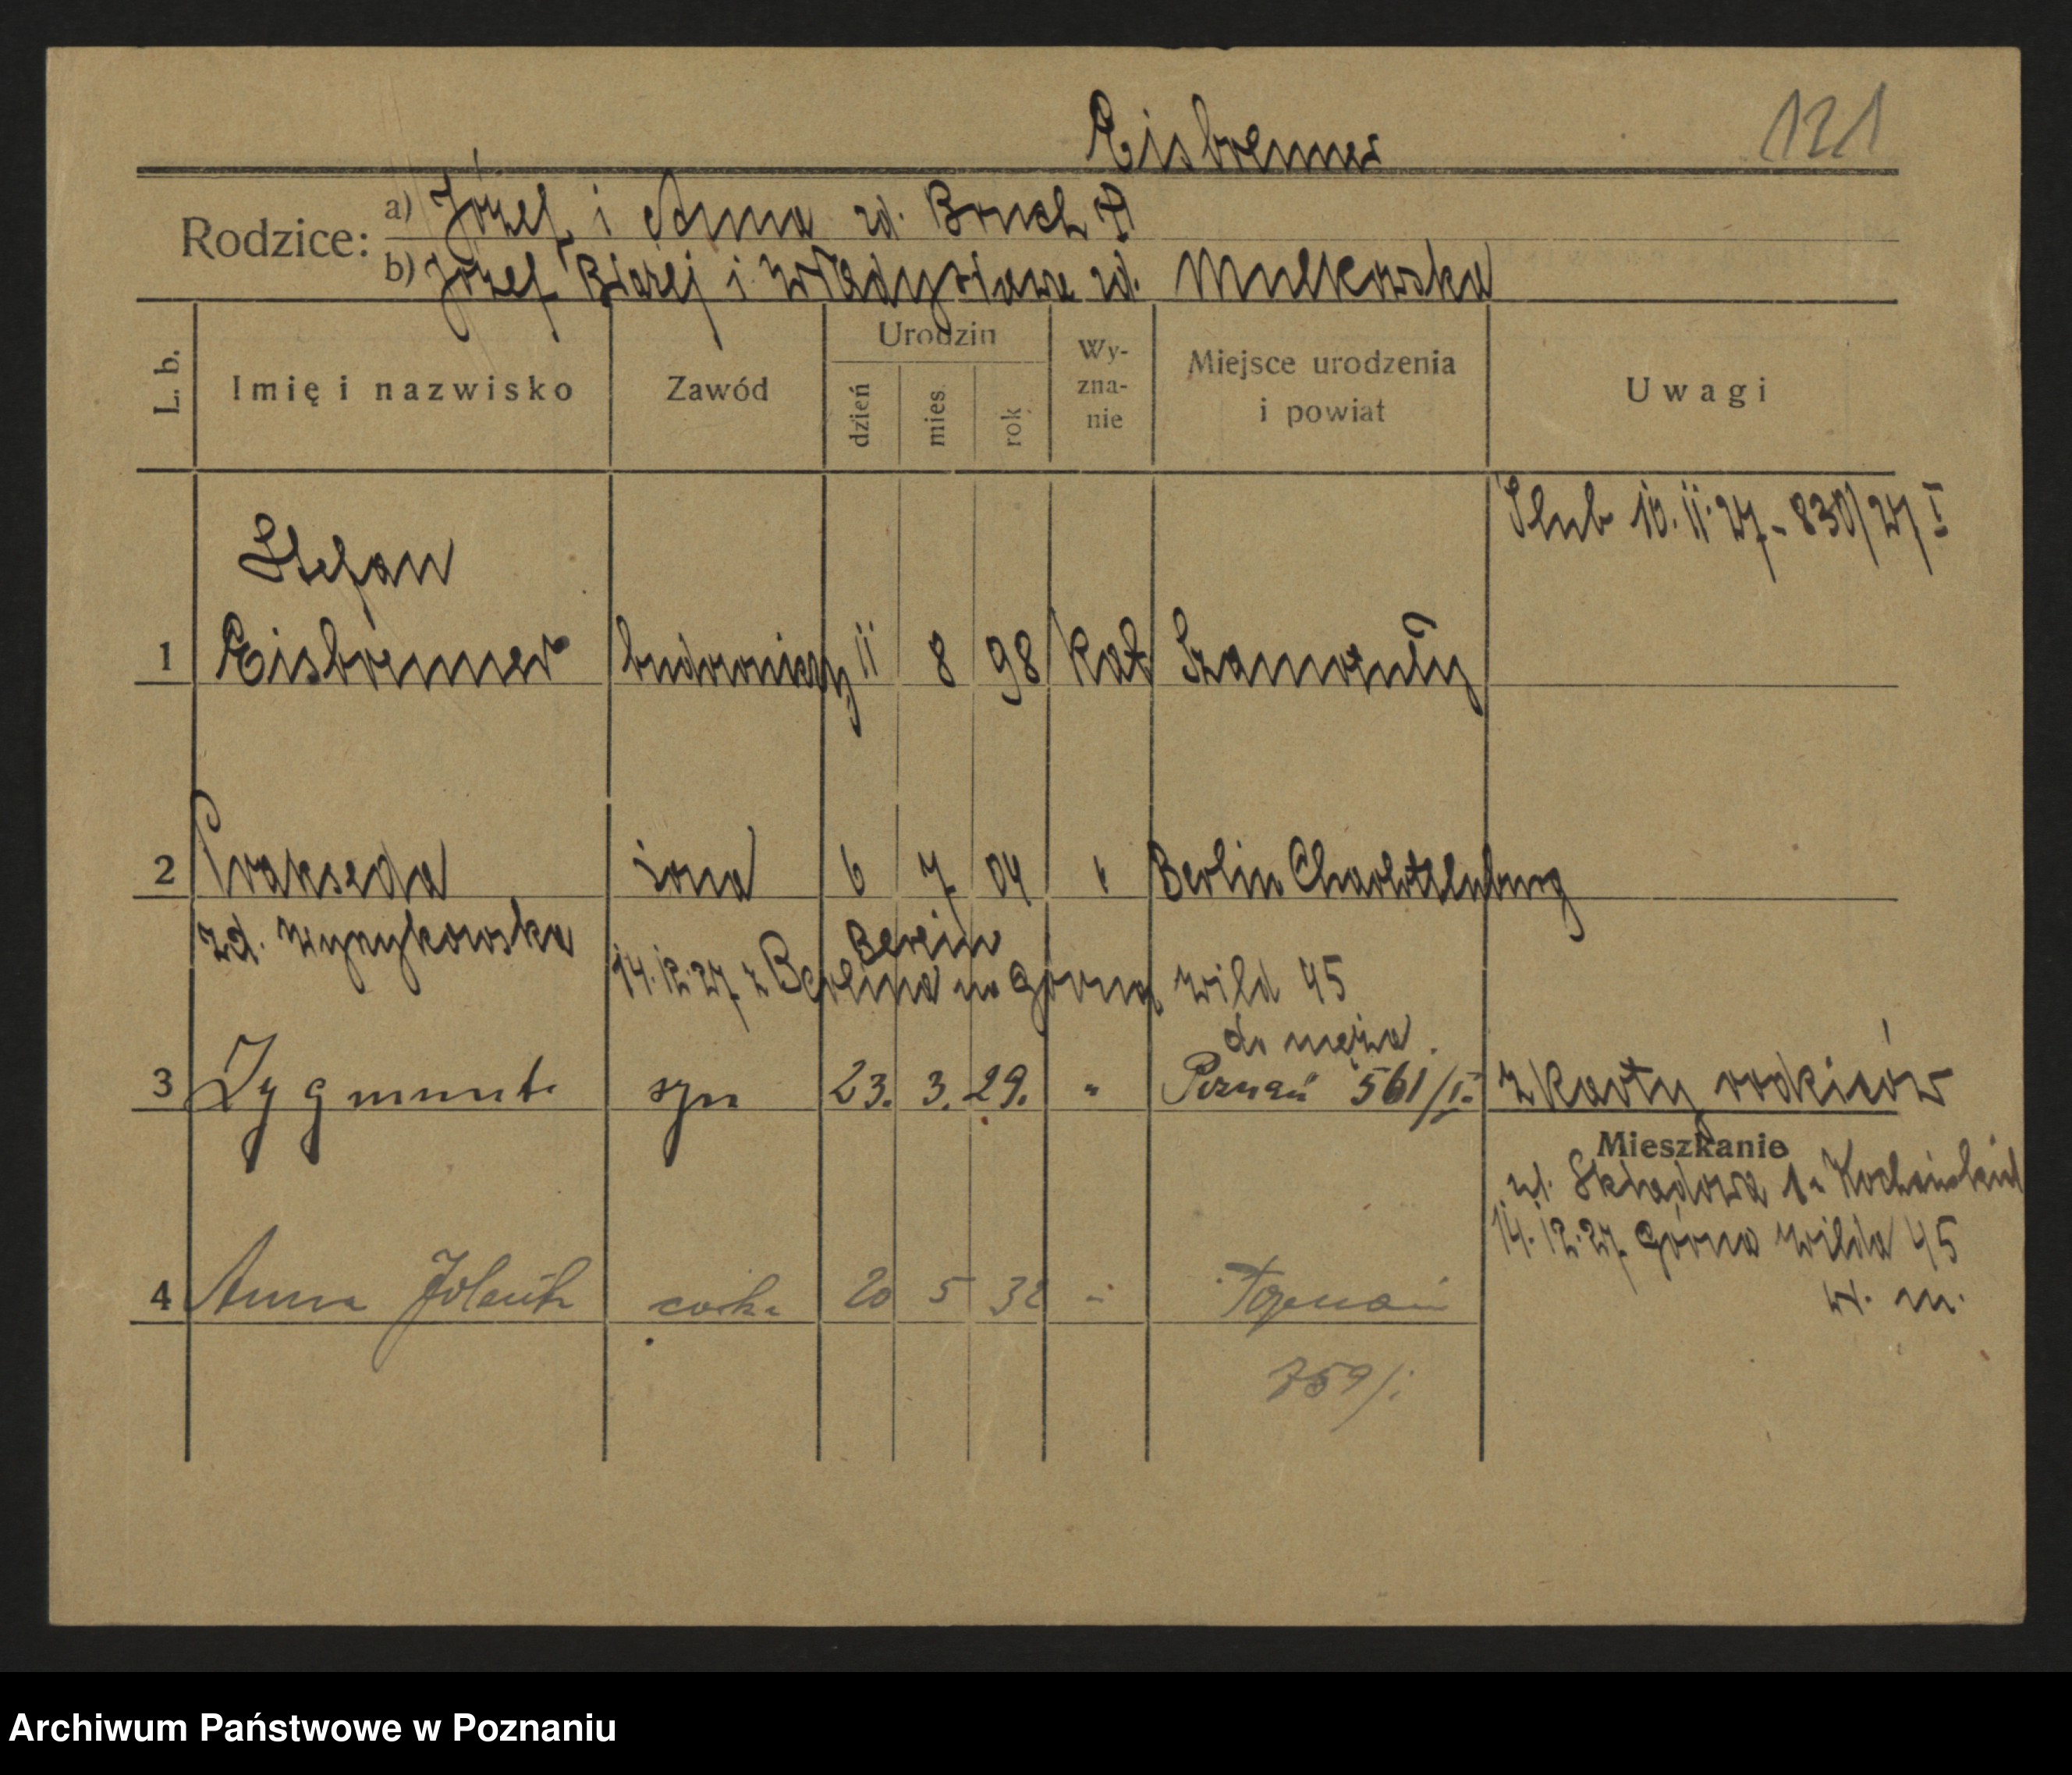 Eisbrenner 121
Rodzice: a) Józef i Anna zd. Bruch
b) Józef Błażej i Władysława zd. Mulkowska
L. b. Imię i nazwisko Zawód Urodzin dzień mies. rok Wy-zna-nie Miejsce urodzenia i powiat Uwagi
Ślub 10. 11. 27 - 830/27 I
Stefan
1 Eisbrenner budowniczy 11 8 98 kat Szamotuły
2 Prakseda żona 6 7 04 " Berlin Charlottenburg
zd.
Berlin
14. 12. 27 z Berlina na Górna Wild 45
do męża.
3 Zygmunt syn 23. 3. 29. " Poznań 561/I. z karty rodziców
Mieszkanie
ul. Składowa
14. 12. 27 Górna Wilda 45
w. m.
4 Anna córka 20 5 32 " Poznań
759/i
Archiwum Państwowe w Poznaniu